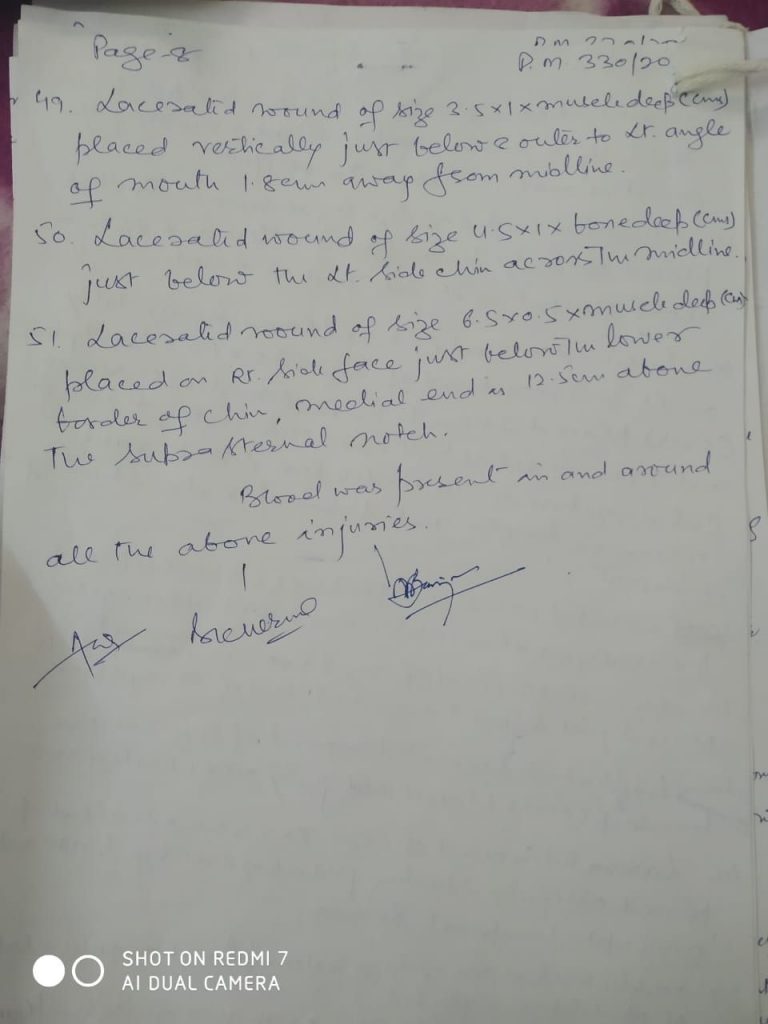 Page-8
P.M. 330/20
49. Lacerated wound of size 3.5x1x muscle deep (cms)
placed vertically just below & outer to Lt. angle
of mouth 1.8cm away from midline.
50. Lacerated wound of size 4.5x1x bonedeep (cms)
just below the Lt. side chin across the midline.
51. Lacerated wound of size 6.5x0.5x muscle deep (cm)
placed on Rt. side face just below the lower
border of chin, medial end is 12.5cm above
The suprasternal notch.
Blood was present in and around
all the above injuries.
SHOT ON REDMI 7
AI DUAL CAMERA